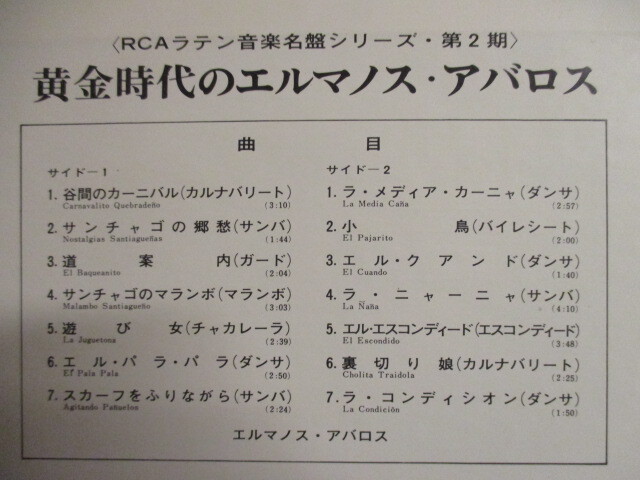 〈RCAラテン音楽名盤シリーズ・第2期〉
黄金時代のエルマノス・アバロス
曲目
サイド－1
1. 谷間のカーニバル(カルナバリート)
Carnavalito Quebradeño (3:10)
2. サンチャゴの郷愁(サンバ)
Nostalgias Santiagueñas (1:44)
3. 道案内(ガード)
El Baqueanito (2:04)
4. サンチャゴのマランボ(マランボ)
Malambo Santiagueño (3:03)
5. 遊び女(チャカレーラ)
La Juguetona (2:39)
6. エル・パラ・パラ(ダンサ)
El Pala Pala (2:50)
7. スカーフをふりながら(サンバ)
Agitando Pañuelos (2:24)
サイド－2
1. ラ・メディア・カーニャ(ダンサ)
La Media Caña (2:57)
2. 小鳥(バイレシート)
El Pajarito (2:00)
3. エル・クアンド(ダンサ)
El Cuando (1:40)
4. ラ・ニャーニャ(サンバ)
La Ñaña (4:10)
5. エル・エスコンディード(エスコンディード)
El Escondido (3:48)
6. 裏切り娘(カルナバリート)
Cholita Traidola (2:25)
7. ラ・コンディシオン(ダンサ)
La Condición (1:50)
エルマノス・アバロス